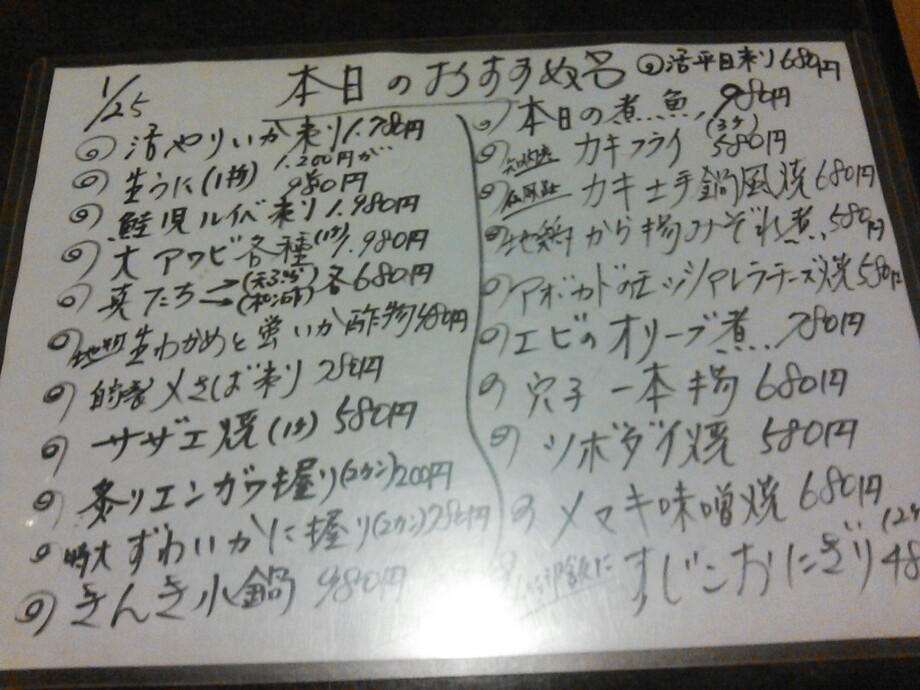 1/25
本日のおすすめ
活やりいか刺り 1.780円
生うに(1枚) 1.200円が… 980円
鮭児ルイベ刺り 1.980円
大アワビ各種(1ケ) 1.980円
真たち→(天ぷら)→(和ポン酢)各680円
地物生わかめと蛍いか酢物 480円
自家製〆さば刺り 780円
サザエ焼(1ケ) 580円
炙りエンガワ握り(2カン) 200円
特大ずわいかに握り(2カン) 780円
きんき小鍋 980円
活平目刺り 680円
本日の煮魚 980円
カキフライ(3ケ) 580円
カキ土手鍋風焼 680円
地鶏から揚みぞれ煮 580円
アボカドのモッツァレラチーズ焼 580円
エビのオリーブ煮 780円
穴子一本揚 680円
ツボダイ焼 580円
メマキ味噌焼 680円
すじこおにぎり(2ケ 48